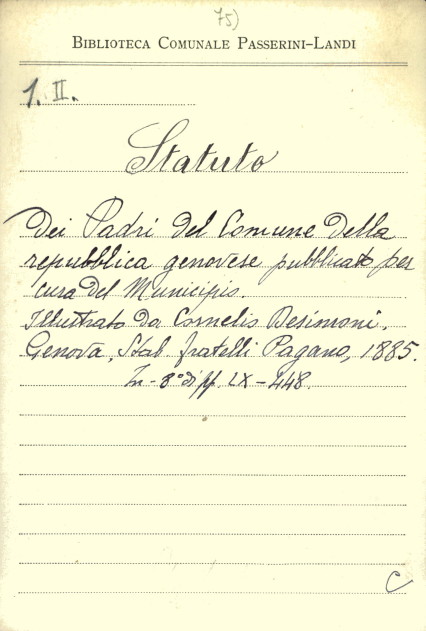 75)
BIBLIOTECA COMUNALE PASSERINI-LANDI
1. II.
Statuto
Dei Padri del Comune della
repubblica genovese pubblicato per
cura del Municipio.
Illustrato da Cornelio Desimoni.
Genova, Stab fratelli Pagano, 1885.
In-8° di pp. LX-448.
C